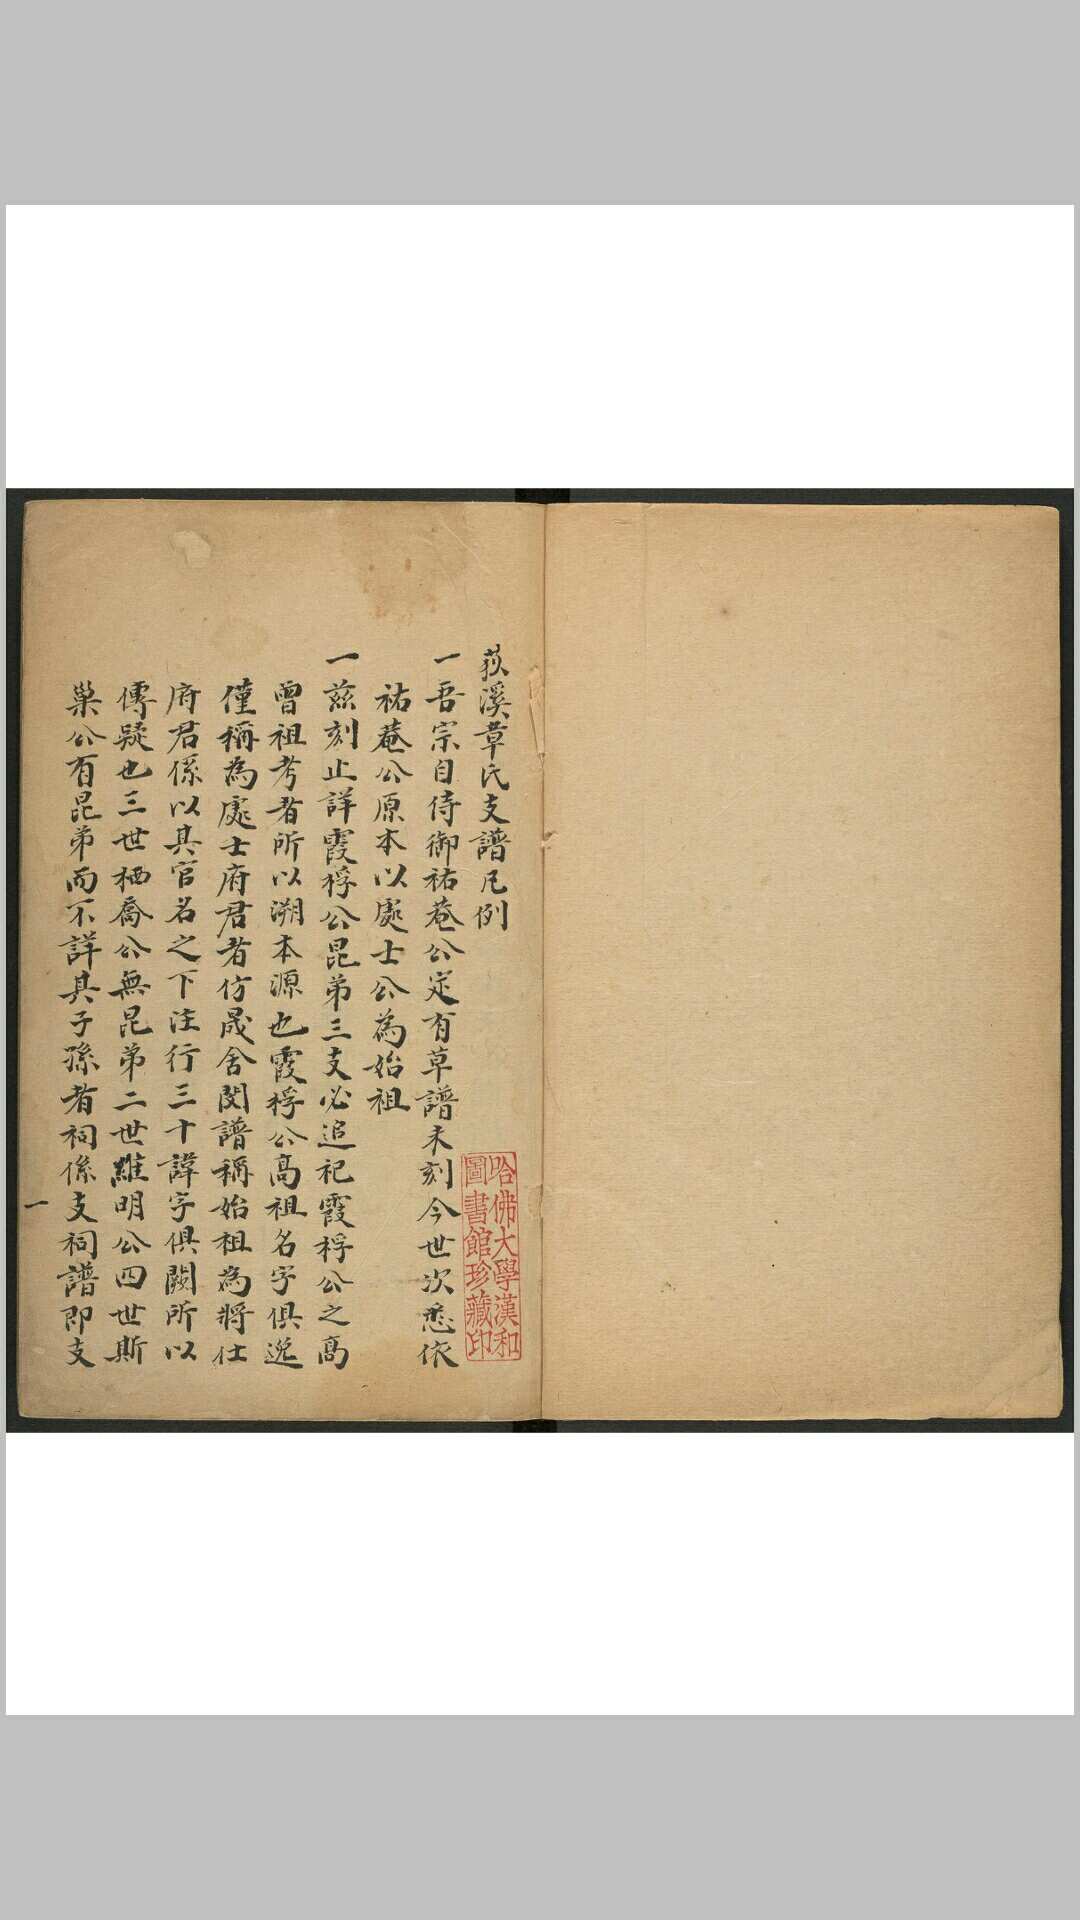 荻溪章氏支譜凡例
一吾宗自侍御祐菴公定有草譜未刻今世次悉依
祐菴公原本以處士公為始祖
一茲刻止詳霞稃公昆弟三支必追祀霞稃公之高
曾祖考者所以溯本源也霞稃公高祖名字俱逸
僅稱為處士府君者仿晟舍閔譜稱始祖為將仕
府君係以其官名之下注行三十諱字俱闕所以
傳疑也三世栖喬公無昆弟二世維明公四世斯
巢公有昆弟而不詳其子孫者祠係支祠譜即支
一
哈佛大學漢和
圖書館珍藏印